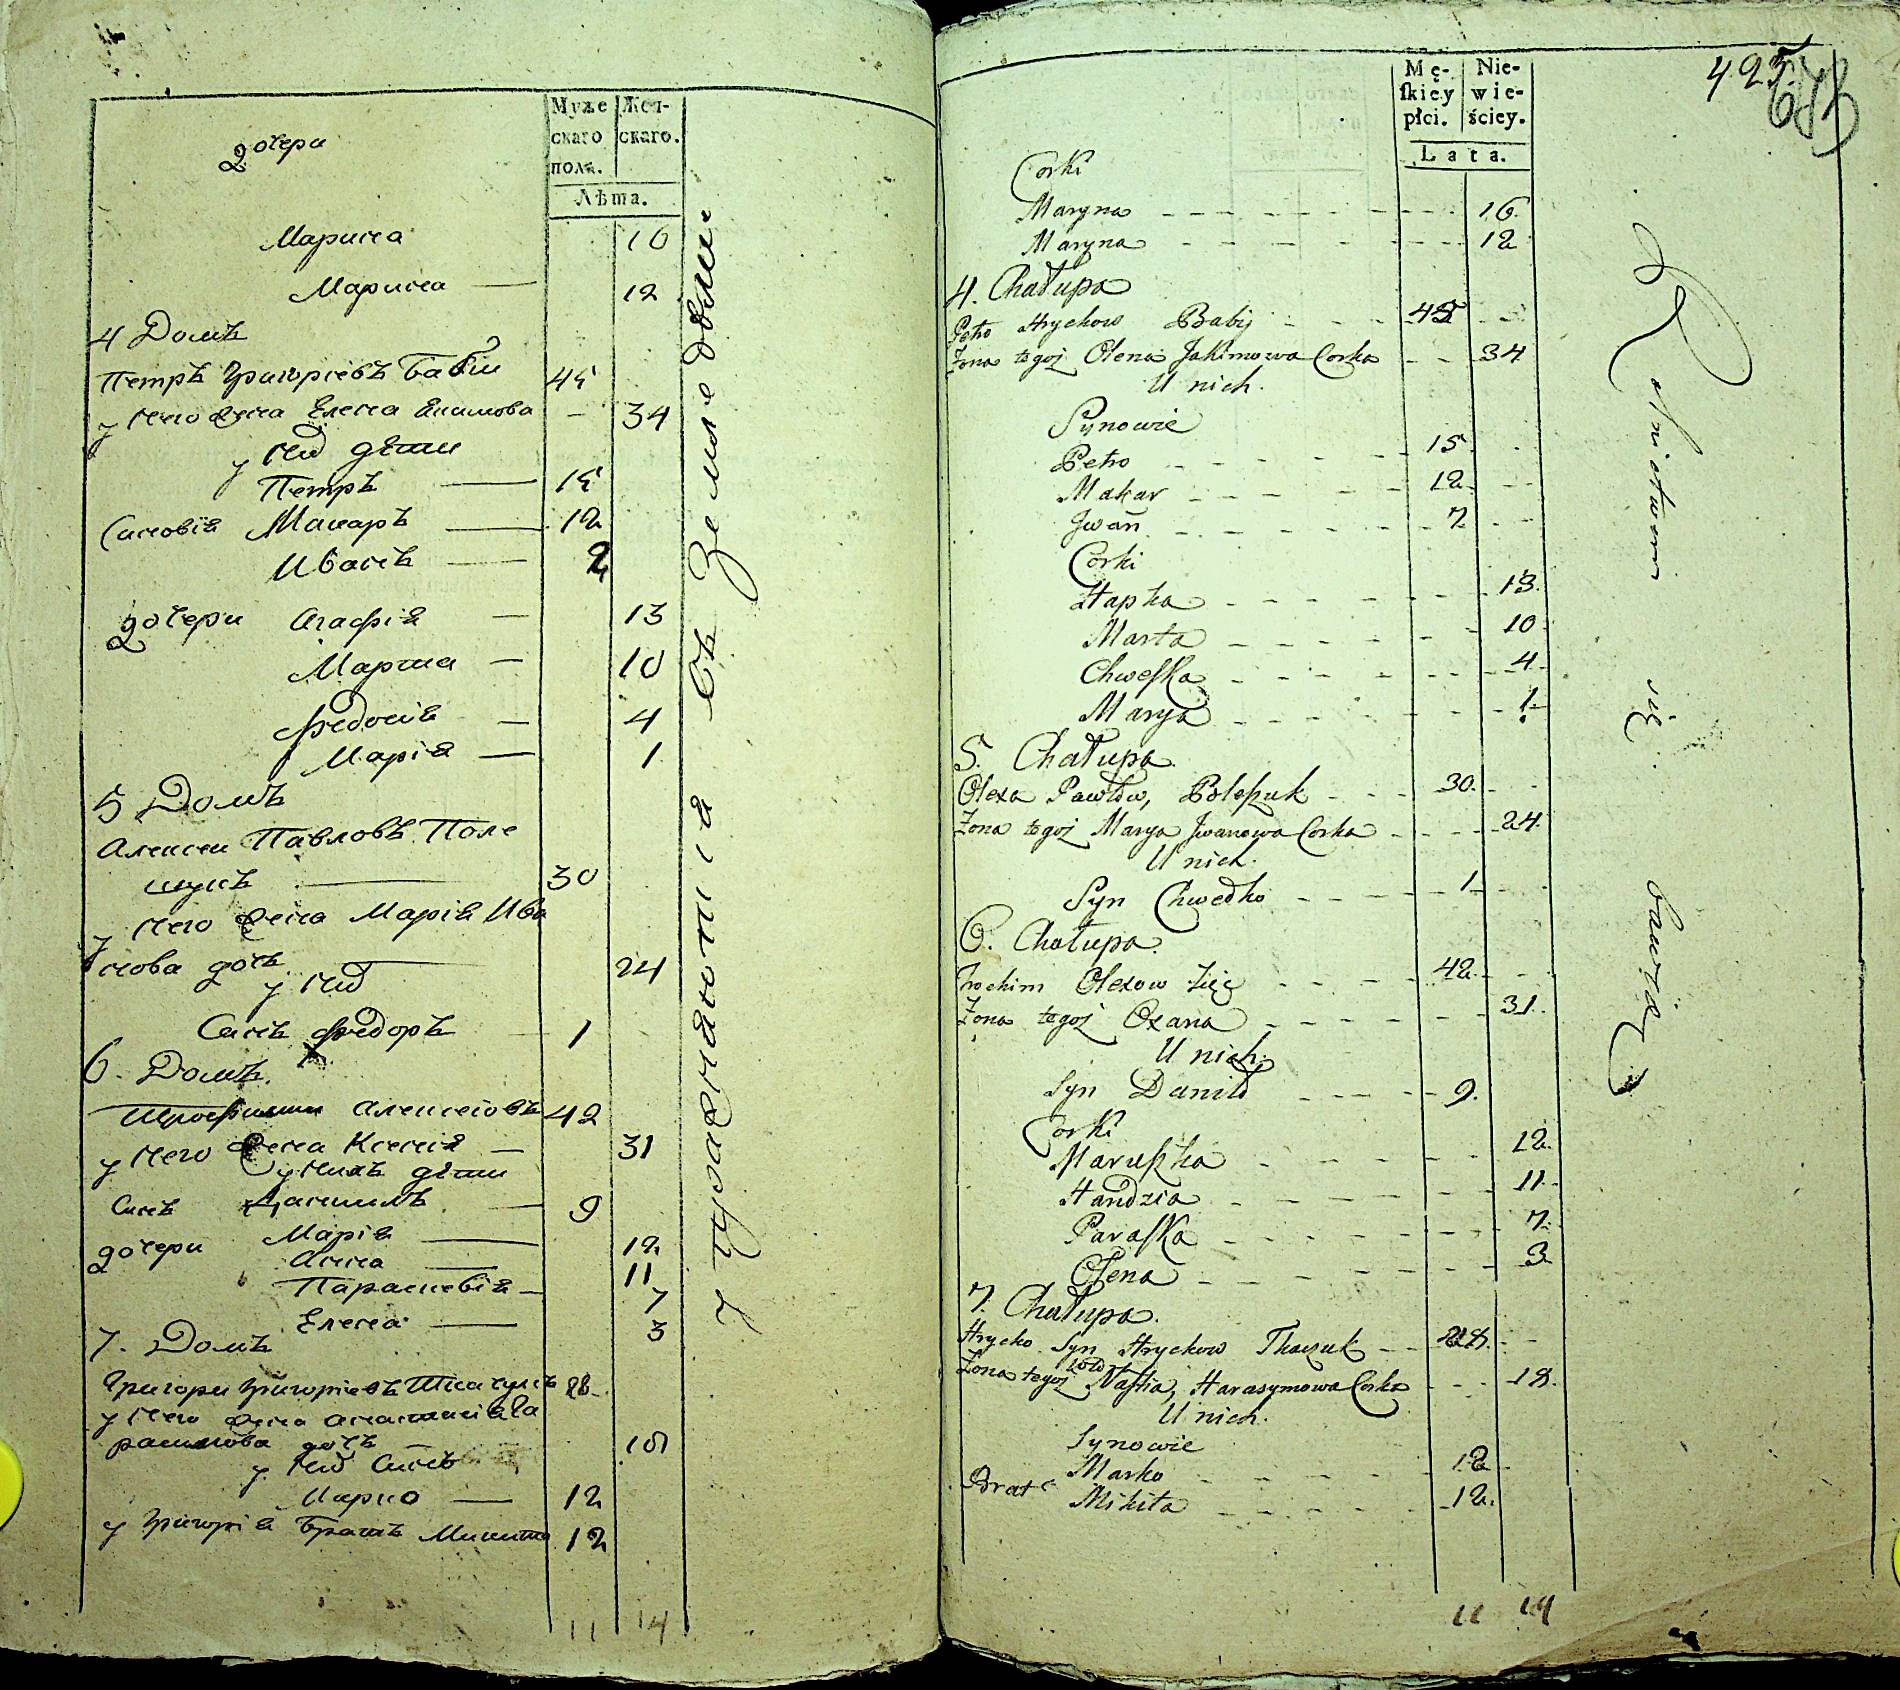 Муже
скаго
пола.
Жен-
скаго.
Лѣта.
дочери
Марина 16
Марина — 12
4 Домъ
Петръ Григорiевъ Бабiи 45
у него жена Елена Якимова — 34
у нихъ дѣти
Петръ — 15
Синовiя Макаръ — 12
Иванъ — 7
дочери Агафiя — 13
Марта — 10
Федосiя — 4
Марiя — 1
5 Домъ
Алексеи Павловъ Поле
щукъ — 30
у него жена Марiя Ива
нова дочь — 24
у нихъ
Синъ Федоръ — 1
6. Домъ
Трофимъ Алексеювъ 42
у него жена Ксенiя — 31
у нихъ дѣти
Синъ Данiилъ — 9
дочери Марiя — 12
Анна — 11
Параскевiя — 7
Елена — 3
7. Домъ
Григори Григорiевъ Ткачукъ 28
у него жена Анастасiя Га
расимова дочь — 18
у нихъ Синъ
Марко — 12
у Григорiя Братъ Микита 12
11 14
упражняются въ земледелiи
Mę-
skiey
płci.
Nie-
wie-
ściey.
Lata.
425
Corki
Maryna 16.
Maryna 12
4. Chałupa
Petro Hrychow Babij 45
Zona tegoż Olena Jakimowa Corka 34
U nich.
Synowie
Petro 15
Makar 12
Jwan 7
Corki
Hapka 13.
Marta 10
Chweska 4
Marya 1
5. Chałupa
Olexa Pawłow, Poleszuk 30.
Zona tegoż Marya Jwanowa Corka 24.
U nich.
Syn Chwedko 1
6. Chałupa
Trochim Olexow Zięć 42
Zona tegoż Oxana 31.
U nich.
Syn Daniło 9.
Corki
Maruszka 12
Handzia 11
Paraska 7.
Olena 3
7. Chałupa.
Hrycko Syn Hrychow Tkaczuk 28.
Zona tegoż Nastia, Harasymowa Corka 18.
U nich.
Synowie
Marko 12
Brat Mikita 12.
11 14
Rolnictwem się bawią